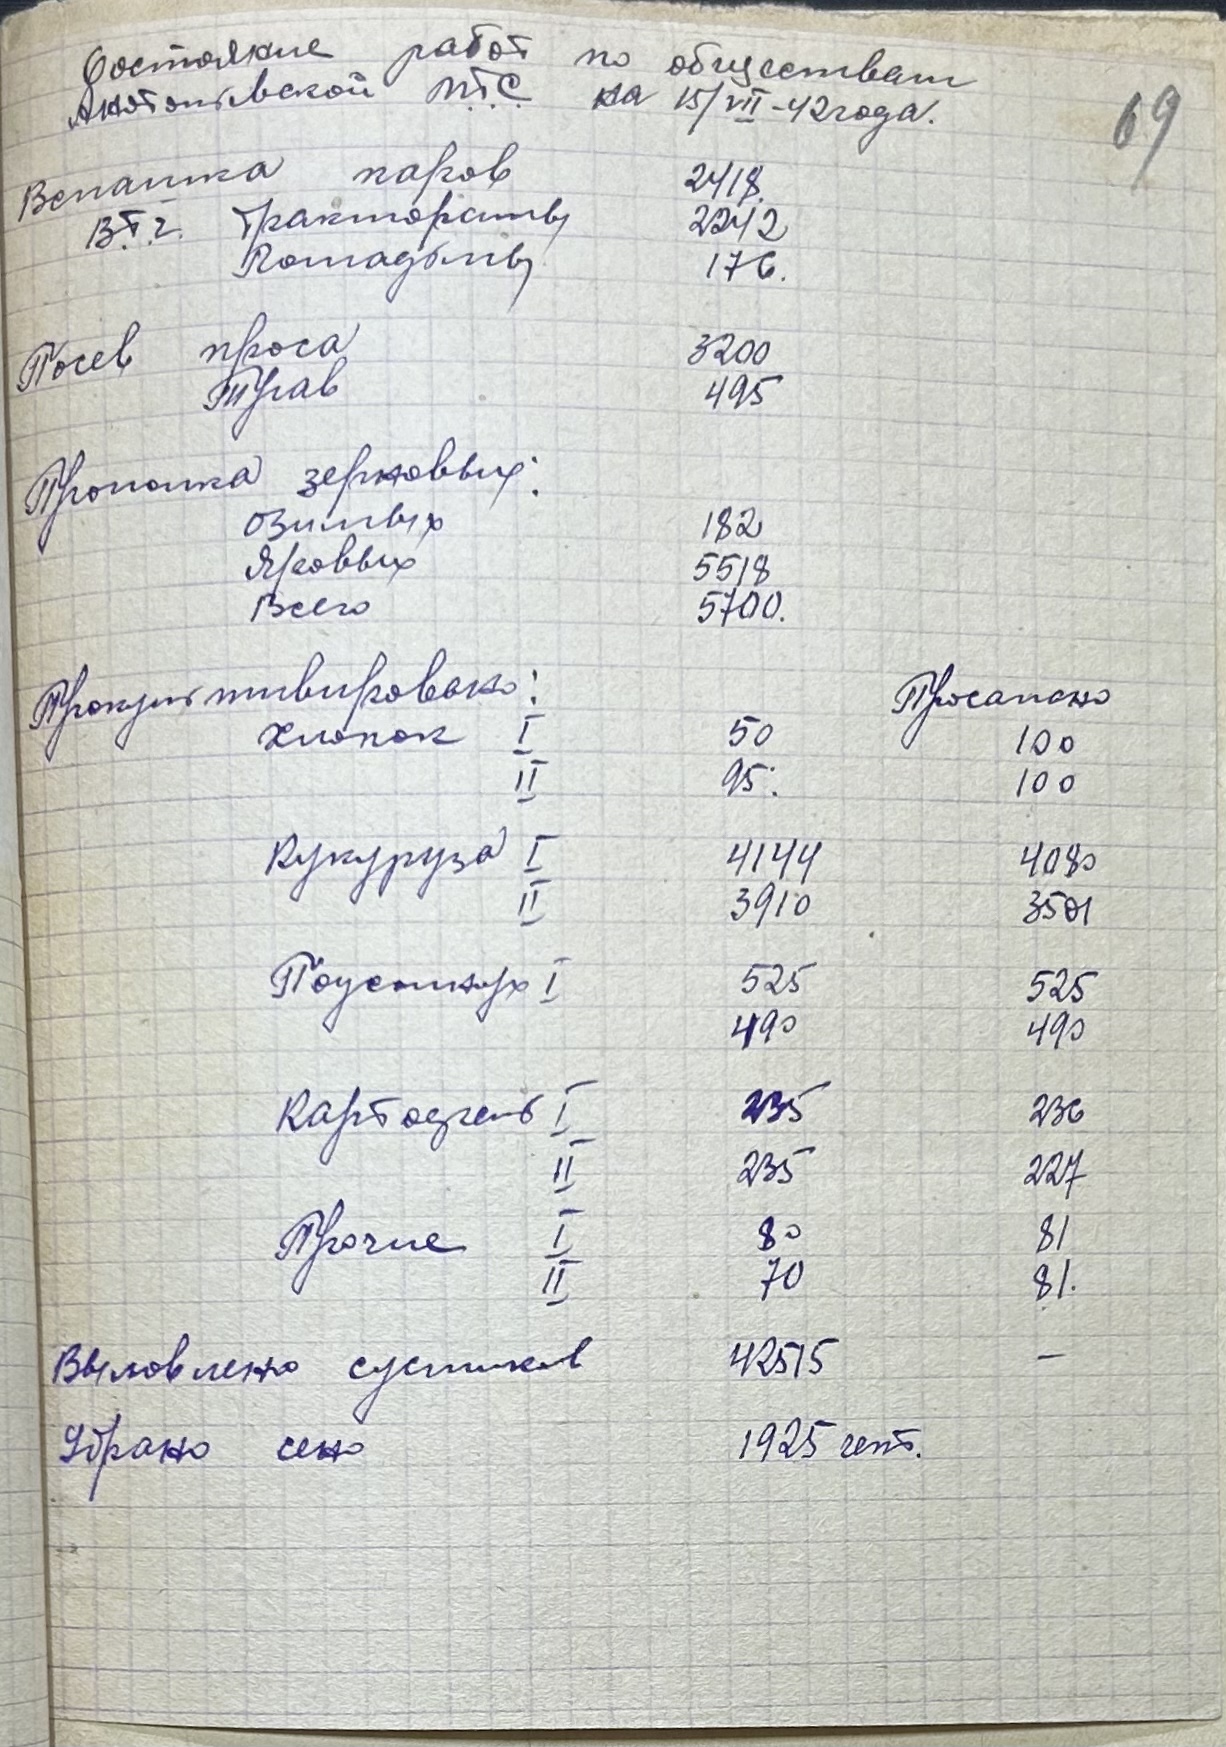 Состояние работ по обществам
Анатольевской М.Т.С. на 15/VII-42 года.
69
Вспашка паров 2418.
В.т.ч. Тракторами 2242
Лошадьми 176.
Посев проса 3200
Трав 495
Прополка зерновых:
Озимых 182
Яровых 5518
Всего 5700.
Прокультивировано: Просапано
Хлопок I 50 100
II 95. 100
Кукуруза I 4144 4080
II 3910 3501
Подсолнух I 525 525
490 490
Картофель I 235 236
II 235 227
Прочие I 80 81
II 70 81.
Выловлено сусликов 42515 —
Убрано сено 1925 цент.